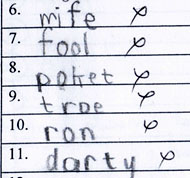 6. mife
7. fool
8. poket
9. troe
10. ron
11. darty